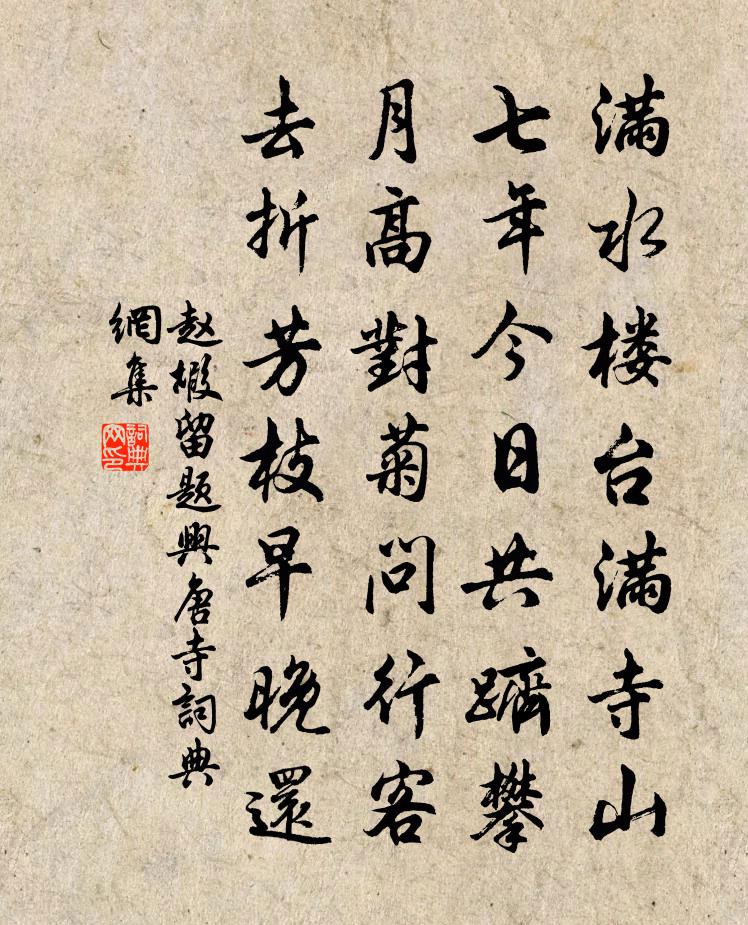 满水楼台满寺山
七年今日共躋攀
月高對菊問行客
去折芳枝早晚還
赵嘏留题興唐寺詞典
網集
詞典
网印